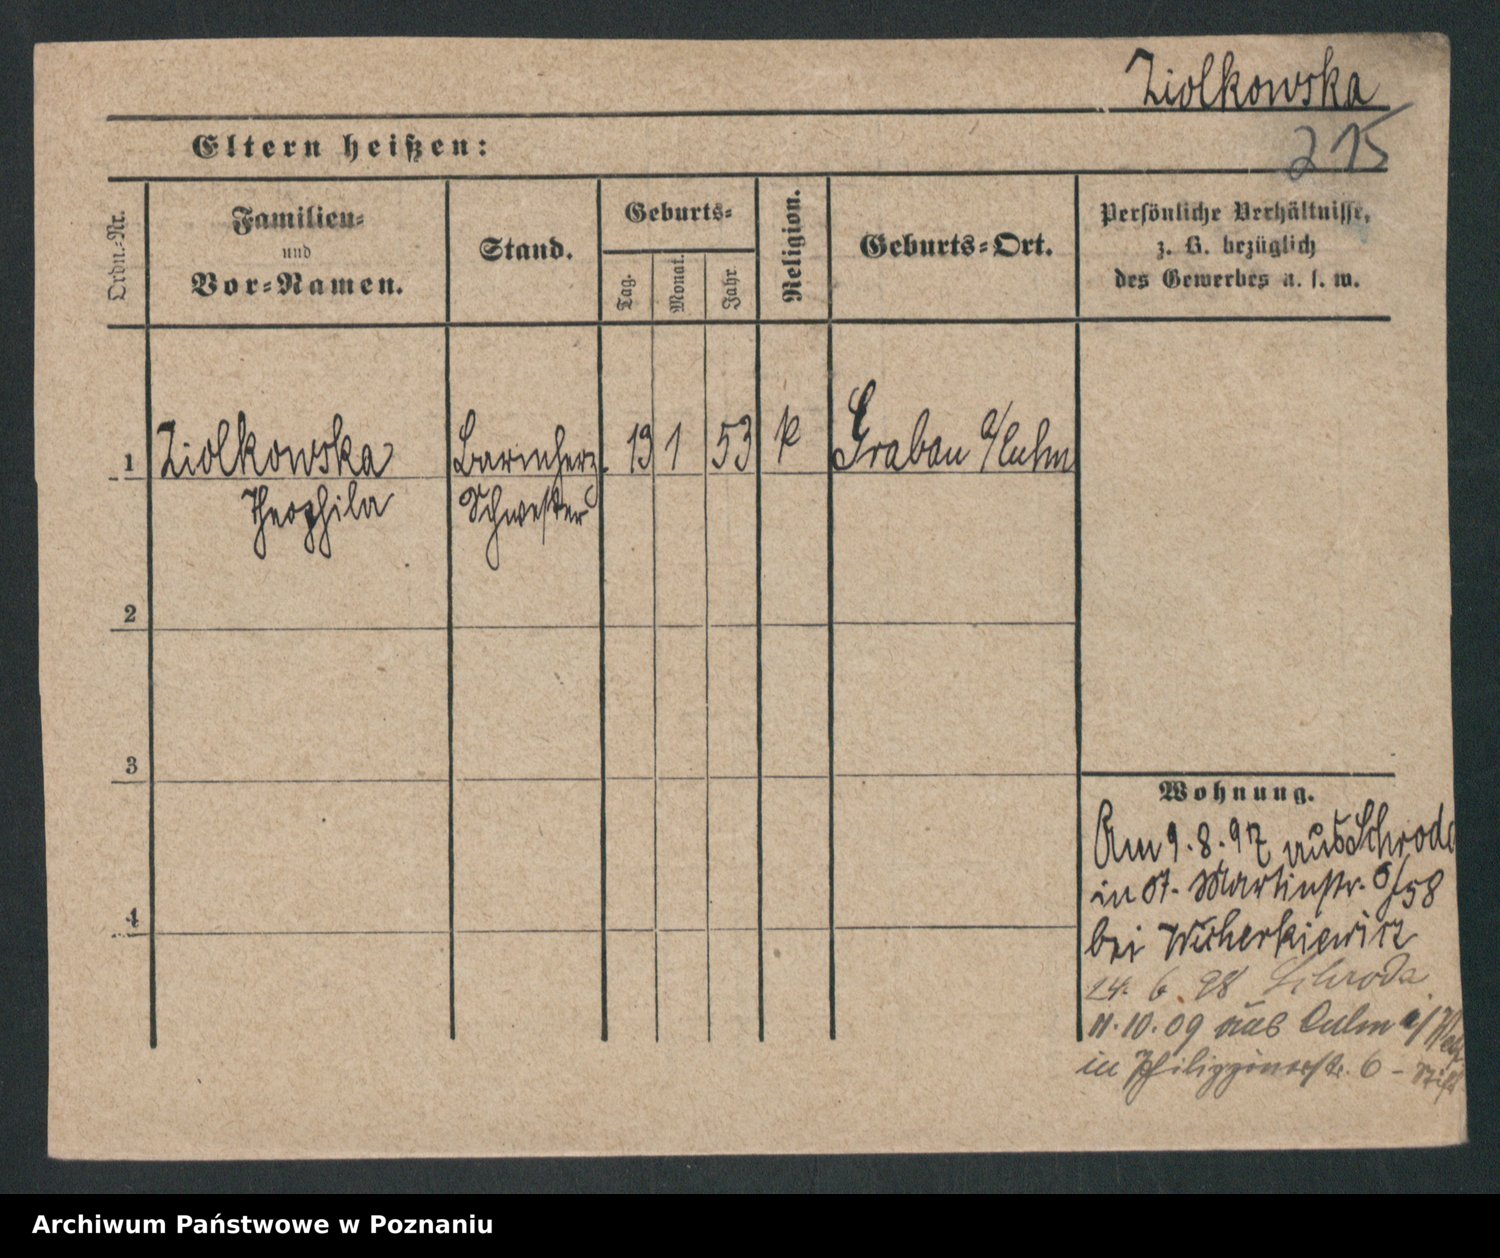 Ziolkowska
215
Eltern heißen:
Ordn.-Nr.
Familien-
und
Vor-Namen.
Stand.
Geburts-
Tag.
Monat.
Jahr
Religion.
Geburts-Ort.
Persönliche Verhältnisse,
z. B. bezüglich
des Gewerbes u. s. w.
1 Ziolkowska Barmherz. 13 1 53 k Grabau a/Culm
Theophila Schwester
2
3
4
Wohnung.
Am 9.8.97 aus Schroda
in St. Martinstr. 6/58
bei Wicherkiewicz
24. 6. 98 Schroda
11.10.09 aus Culm a/
in Philippinerstr. 6 - Stift
Archiwum Państwowe w Poznaniu